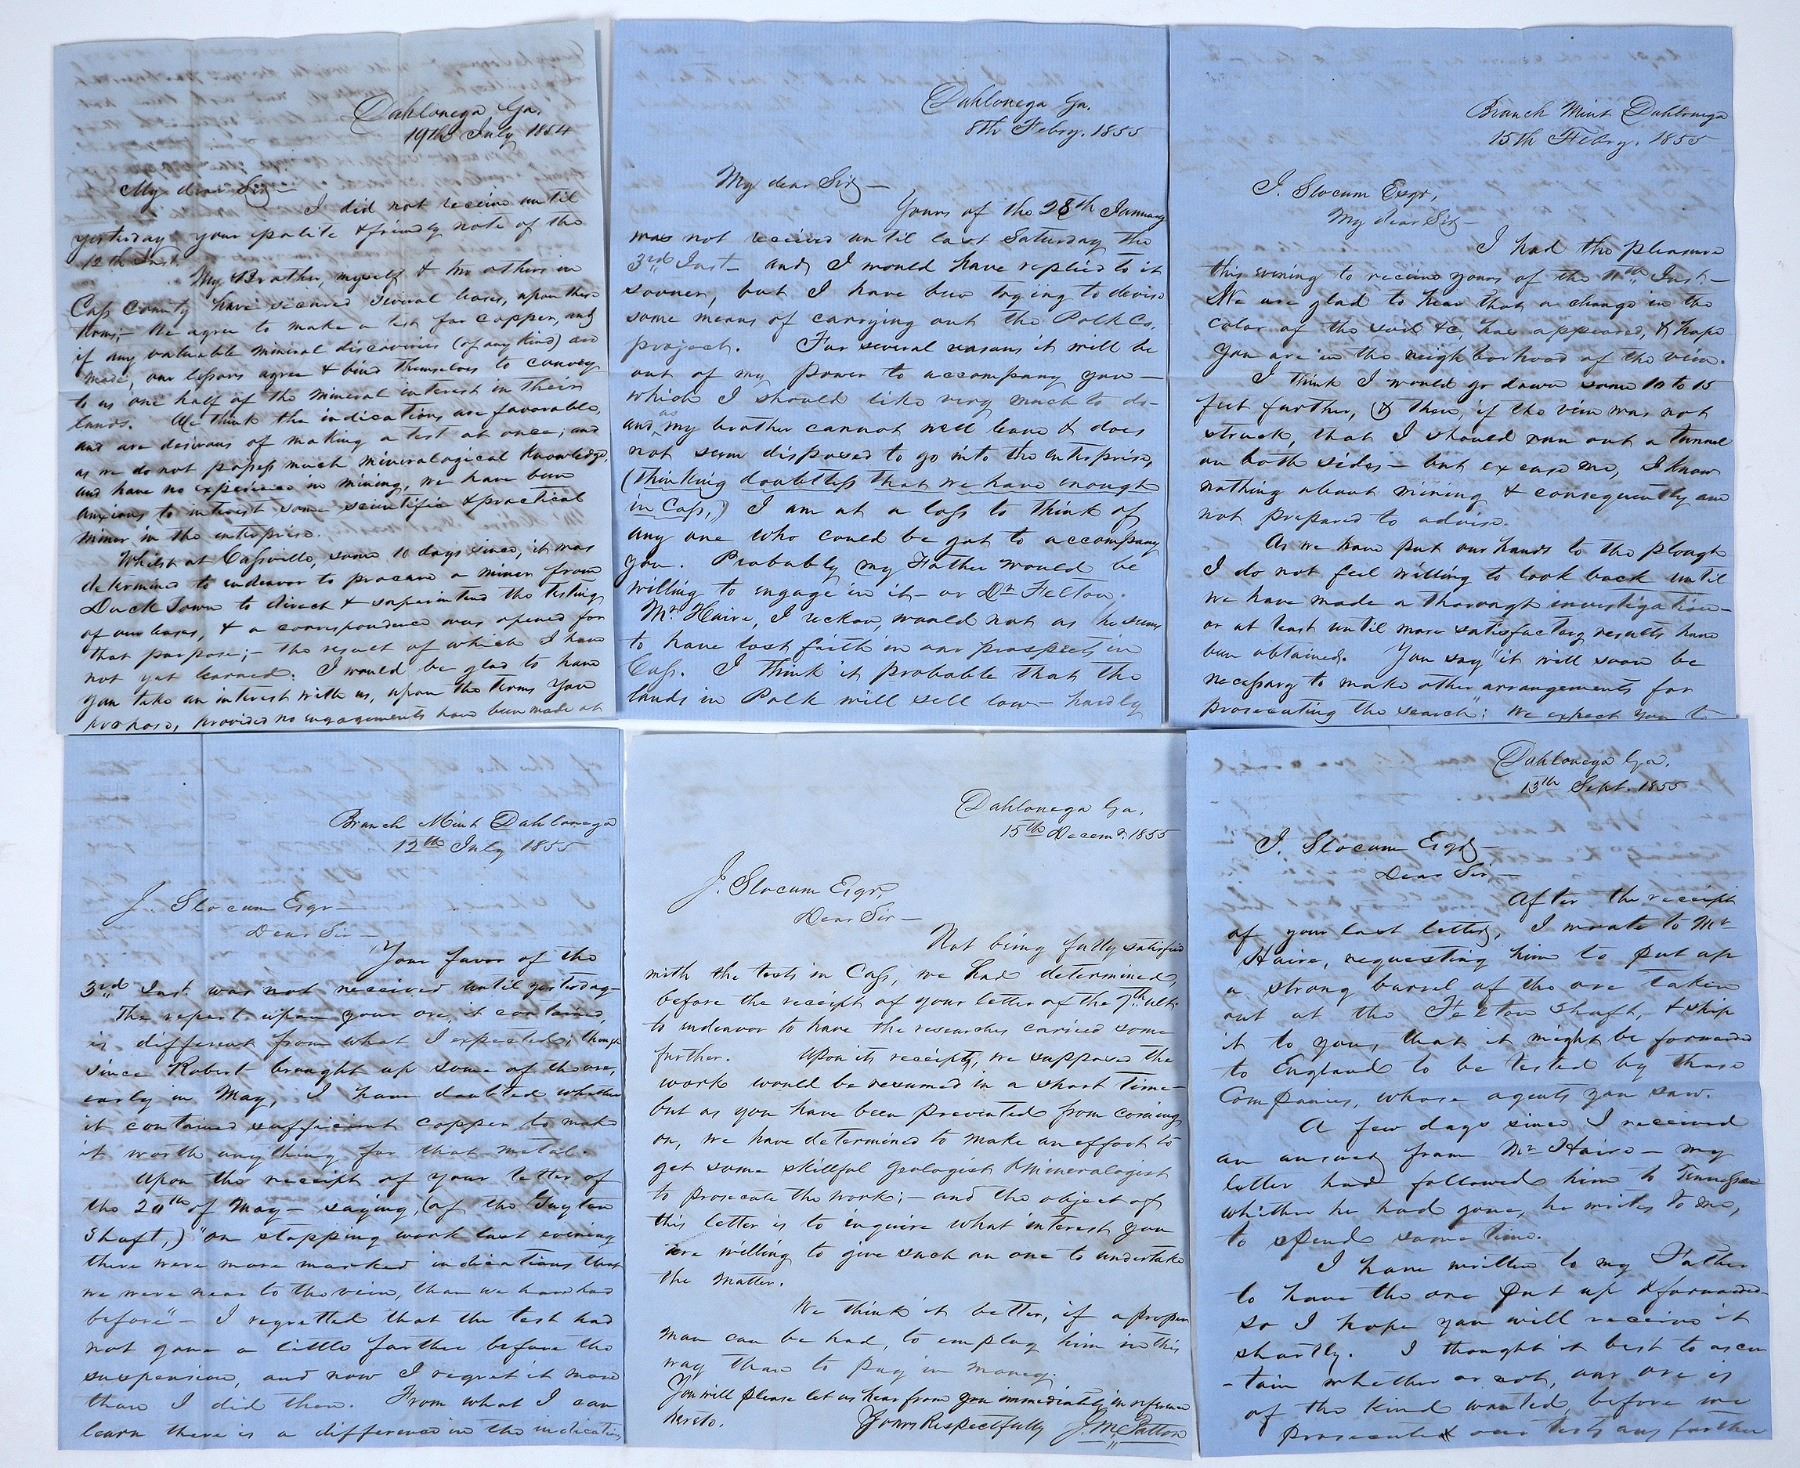 Dahlonega Ga.
19th July 1854
My dear Sir—
I did not receive until
yesterday your polite & friendly note of the
12th Inst.
My Brother, myself & two others in
Cass County have secured several leases, upon these
terms;— We agree to make a test for copper, and
if any valuable mineral discoveries (of any kind) are
made, our lessors agree & bind themselves to convey
to us one half of the mineral interest in their
lands. We think the indications are favorable,
and are desirous of making a test at once; and
as we do not possess much mineralogical knowledge,
and have no experience in mining, we have been
anxious to interest some scientific & practical
miner in the enterprise.
Whilst at Cassville, some 10 days since, it was
determined to endeavor to procure a miner from
Duck Town to direct & superintend the testing
of our leases, & a correspondence was opened for
that purpose;— the result of which I have
not yet learned. I would be glad to have
you take an interest with us, upon the terms you
propose, provided no engagements have been made at
Dahlonega Ga.
8th Febry. 1855
My dear Sir—
Yours of the 28th January
was not received until last Saturday the
3rd Inst— and I would have replied to it
sooner, but I have been trying to devise
some means of carrying out the Polk Co.
project. For several reasons it will be
out of my power to accompany you—
which I should like very much to do—
and as my brother cannot well leave & does
not seem disposed to go into the enterprise,
(thinking doubtless that we have enough
in Cass,) I am at a loss to think of
any one who could be got to accompany
you. Probably my Father would be
willing to engage in it— or Dr Felton.
Mr Haire, I reckon, would not as he seems
to have lost faith in our prospects in
Cass. I think it probable that the
lands in Polk will sell low— hardly
Branch Mint Dahlonega
15th Febry. 1855
J. Slocum Esqr,
My dear Sir—
I had the pleasure
this evening to receive yours of the 11th Inst.—
We are glad to hear that a change in the
color of the soil &c, has appeared, & hope
you are in the neighborhood of the vein.
I think I would go down some 10 to 15
feet further, & then, if the vein was not
struck, that I should run out a tunnel
on both sides— but excuse me, I know
nothing about mining & consequently am
not prepared to advise.
As we have put our hands to the plough
I do not feel willing to look back until
we have made a thorough investigation—
or at least until more satisfactory results have
been obtained. You say "it will soon be
necessary to make other arrangements for
prosecuting the search": We expect you to
Branch Mint Dahlonega
12th July 1855
J. Slocum Esqr—
Dear Sir—
Your favor of the
3rd Inst. was not received until yesterday—
The report upon your ore, it contained,
is different from what I expected; though
since Robert brought up some of the ore,
early in May, I have doubted whether
it contained sufficient copper to make
it worth anything for that metal.
Upon the receipt of your letter of
the 20th of May— saying, (of the Guyton
Shaft,) "on stopping work last evening
there were more marked indications that
we were near to the vein, than we have had
before"— I regretted that the test had
not gone a little farther before the
suspension, and now I regret it more
than I did then. From what I can
learn there is a difference in the indications
Dahlonega Ga.
15th Decemr. 1855
J. Slocum Esqr,
Dear Sir—
Not being fully satisfied
with the tests in Cass, we had determined,
before the receipt of your letter of the 7th ult.
to endeavor to have the researches carried some
further. Upon its receipt, we supposed the
work would be resumed in a short time—
but as you have been prevented from coming
on, we have determined to make an effort to
get some skillful Geologist & Mineralogist
to prosecute the work;— and the object of
this letter is to inquire what interest you
are willing to give such an one to undertake
the matter.
We think it better, if a proper
man can be had, to employ him in this
way than to pay in money.
You will please let us hear from you immediately in reference
hereto.
Yours Respectfully J. McPatton
Dahlonega Ga.
13th Sept. 1855
J. Slocum Esqr—
Dear Sir—
After the receipt
of your last letter, I wrote to Mr
Haire, requesting him to put up
a strong barrel of the ore taken
out at the Felton Shaft, & ship
it to you, that it might be forwarded
to England to be tested by those
Companies, whose agents you saw.
A few days since I received
an answer from Mr Haire— my
letter had followed him to Tennessee
whither he had gone, he writes to me,
to spend some time.
I have written to my Father
to have the ore put up & forwarded—
so I hope you will receive it
shortly. I thought it best to ascer
-tain whether or not, our ore is
of the kind wanted, before we
prosecuted our tests any further